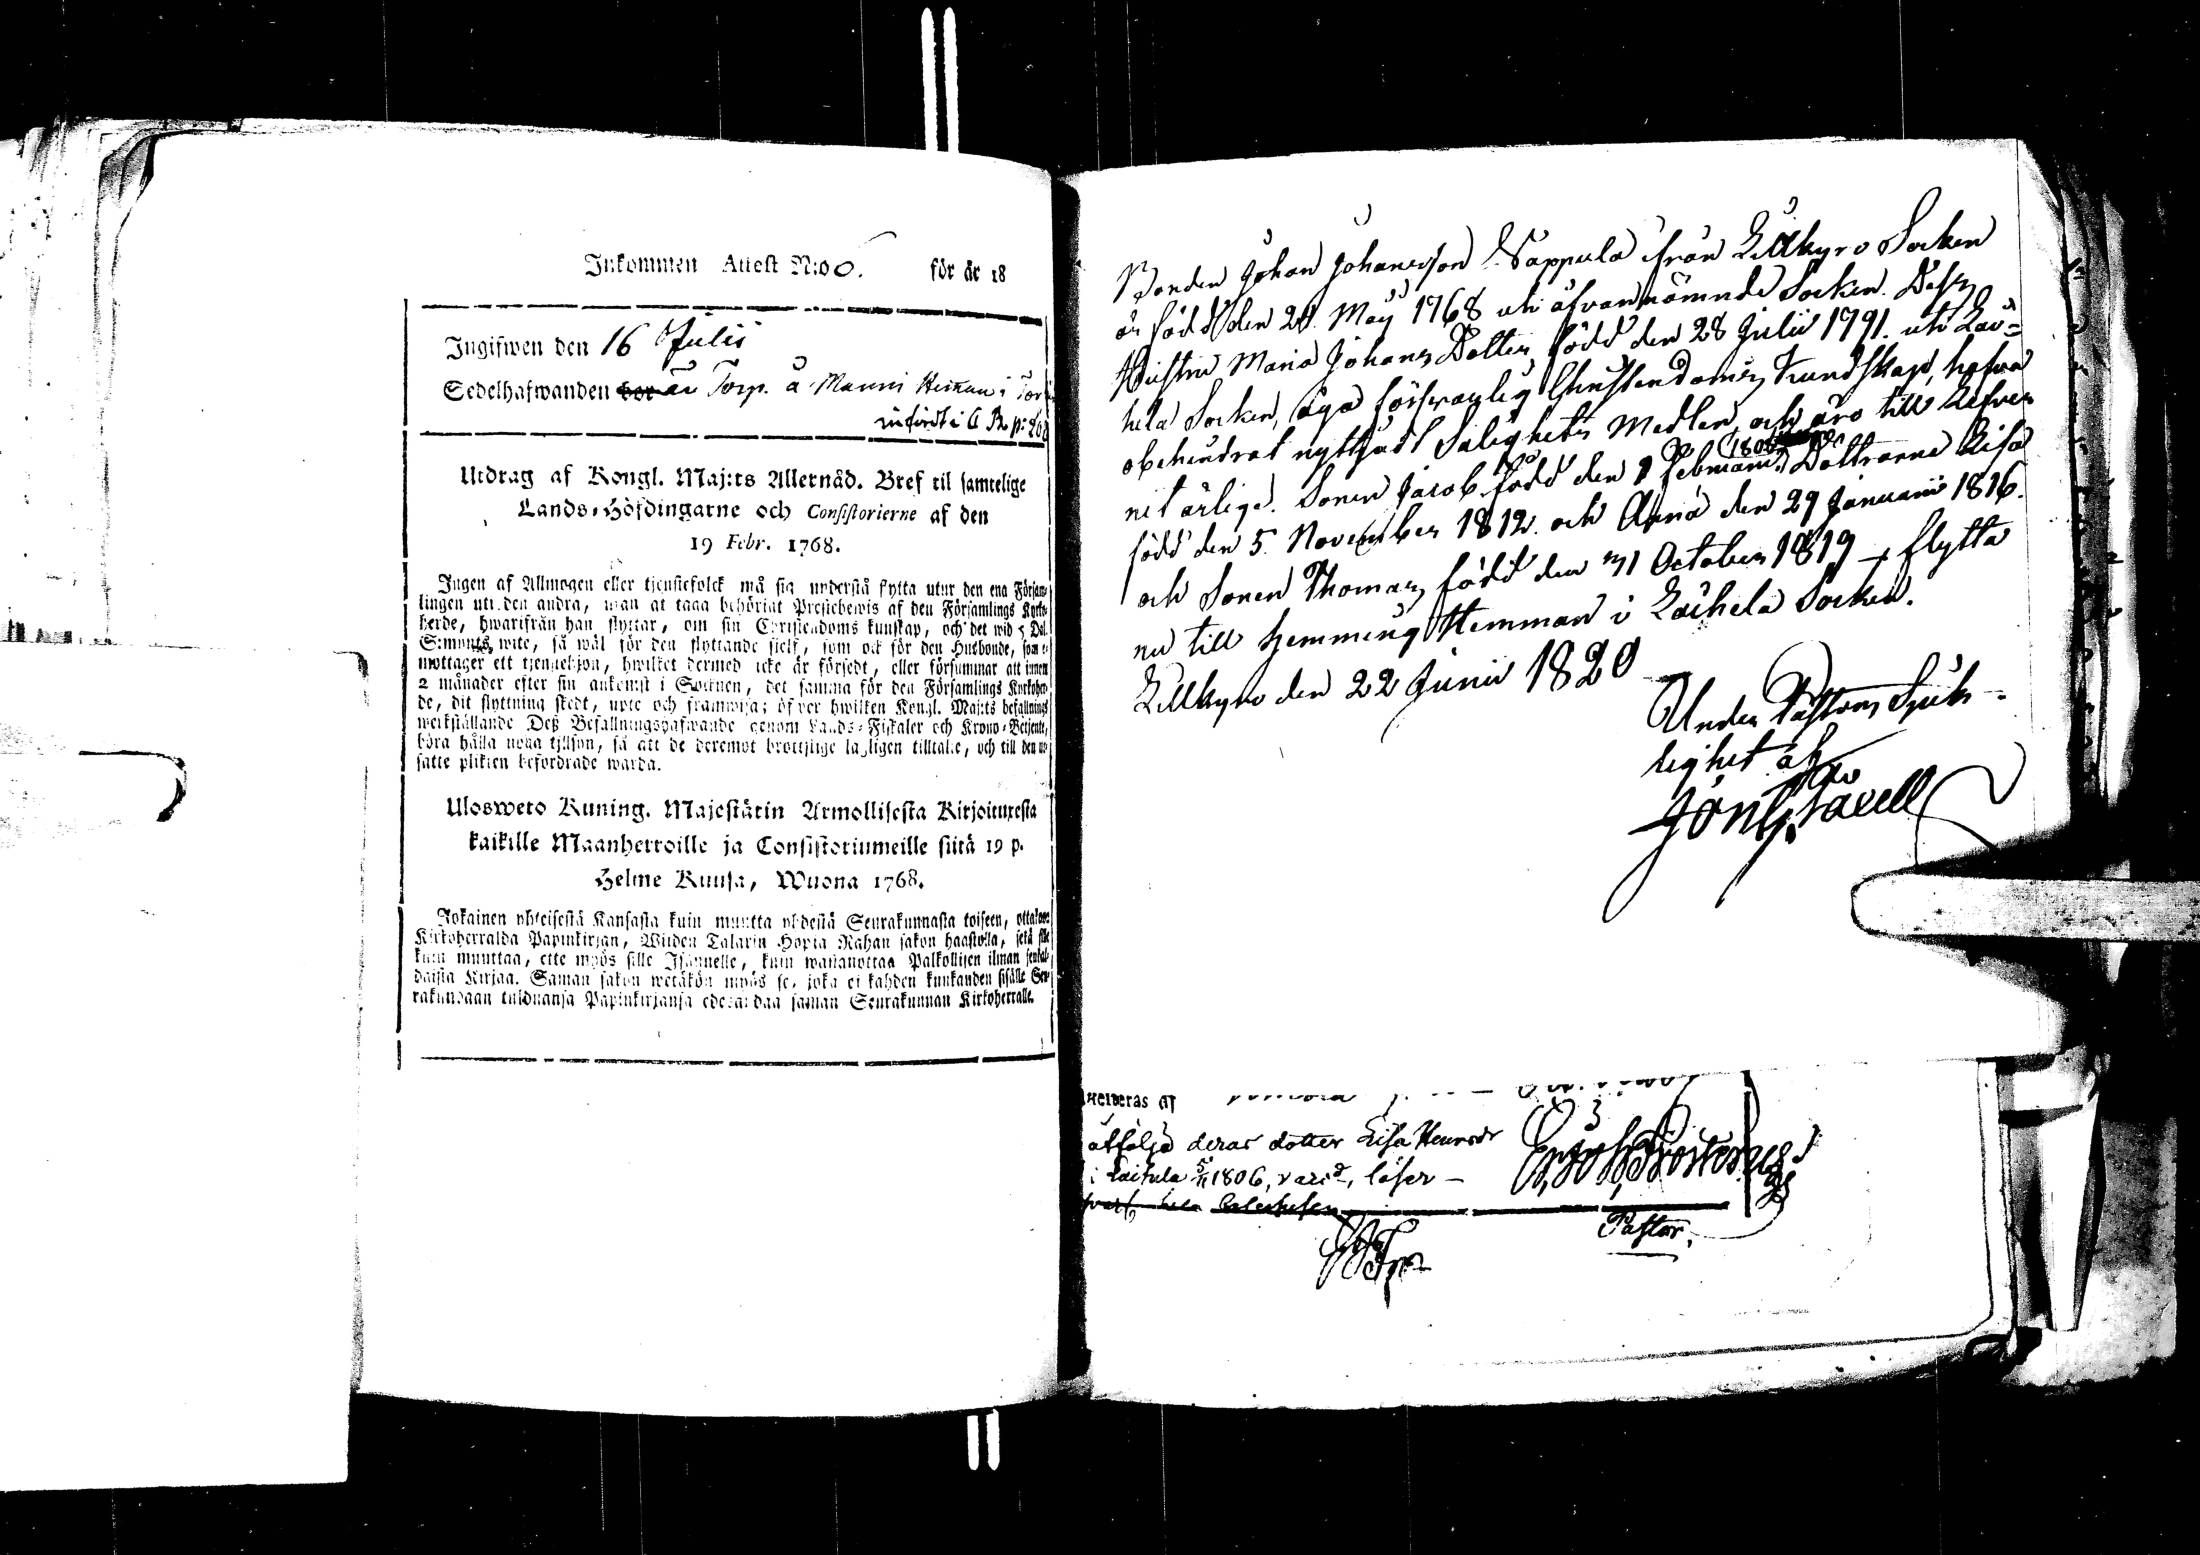 Inkommen Attest N:o 6. för år 18
Ingifwen den 16 Julii
Sedelhafwanden är Torp. å Manni Heman i
infördt i C B p: 268
Utdrag af Kongl. Maj:ts Allernåd. Bref til samtelige
Lands-Höfdingarne och Consistorierne af den
19 Febr. 1768.
Ingen af Allmogen eller tjenstefolck må sig understå flytta utur den ena Försam-
lingen uti den andra, utan at taga behörigt Prestebewis af den Församlings Kyrko-
herde, hwarifrån han flyttar, om sin Christendoms kunskap, och det wid 5 Dal.
S:mynts wite, så wäl för den flyttande sielf, som ock för den Husbonde, som e-
mottager ett tjenstehjon, hwilket dermed icke är försedt, eller försummar att innen
2 månader efter sin ankomst i Socknen, det samma för den Församlings Kyrkoher-
de, dit flyttning skedt, upte och framwisa; öfver hwilken Kongl. Maj:ts befallnings
werkställande Deß Befallningshafwande genom Lands-Fiskaler och Krono-Betjente,
böra hålla noga tillsyn, så att de deremot brottslige lagligen tilltalte, och till den ut-
satte plikten befordrade warda.
Uloswеto Kuning. Majestätin Armollisesta Kirjoituxesta
kaikille Maanherroille ja Consistoriumeille siitä 19 p.
Helme Kuusa, Wuona 1768.
Jokainen yhteisestä Kansasta kuin muutta yhdestä Seurakunnasta toiseen, ottakoon
Kirkoherralda Papinkirjan, Wiiden Talarin Hopia Rahan sakon haastolla, sekä sille
kuin muuttaa, ette myös sille Isännelle, kuin wastanottaa Palkollisen ilman senkal-
daista Kirjaa. Saman sakon wetäkön myös se, joka ei kahden kuukauden sisälle Seu-
rakundaan tulduansa Papinkirjansa edesandaa saman Seurakunnan Kirkoherralle.
Bonden Johan Johansson Nappula ifrån Lillkyro Socken
är född den 20 Maij 1768 uti ofvannämnde Socken. Dess
Hustru Maria Johans Dotter född den 28 Julii 1791. uti Lai-
hela Socken, äga försvarlig Christendoms Kundskap, hafva
obehindrat nyttjadt Salighets Medlen, och äro till Lefver
net ärlige. Sonen Jacob född den 1 Februarii 1808 Döttrarne Lisa
född den 5 November 1812. och Anna den 29 Januarii 1816.
och Sonen Thomas, född den 31 October 1819 – flytta
nu till Hemming Hemman i Laihela Socken.
Lillkyro den 22 Junii 1820
Under Pastors Sjuk-
lighet af
attfölja deras dotter Lisa Henrsdr
i Laihela 5/11 1806, vacc:d, läser –
Pastor.